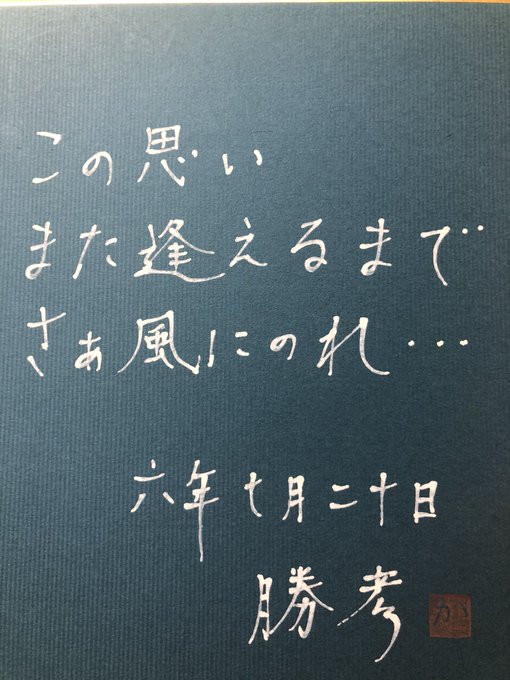 この思い
また逢えるまで
さぁ風にのれ…
六年七月二十日
勝考
か